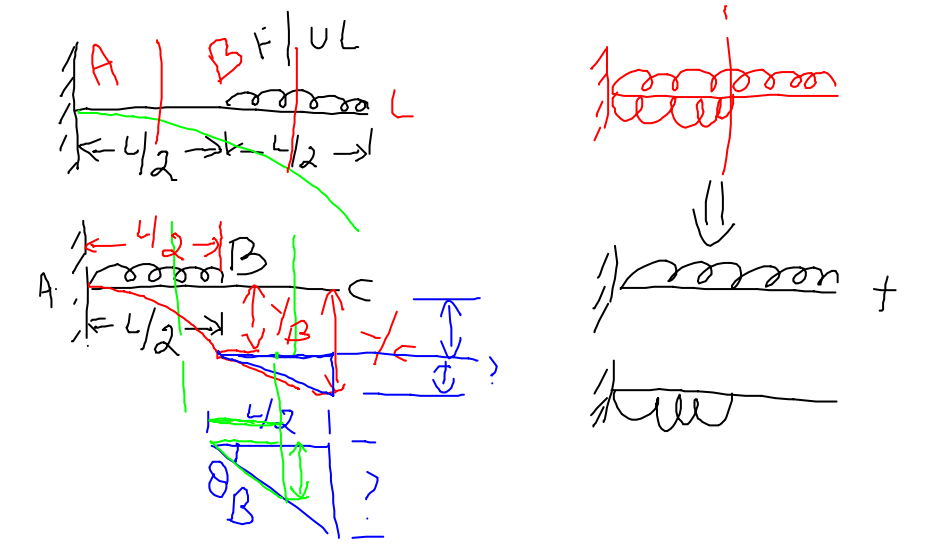 A B F UL
L
L/2 L/2
L/2
A B C
L/2 YB Yc
?
L/2
θB ?
+